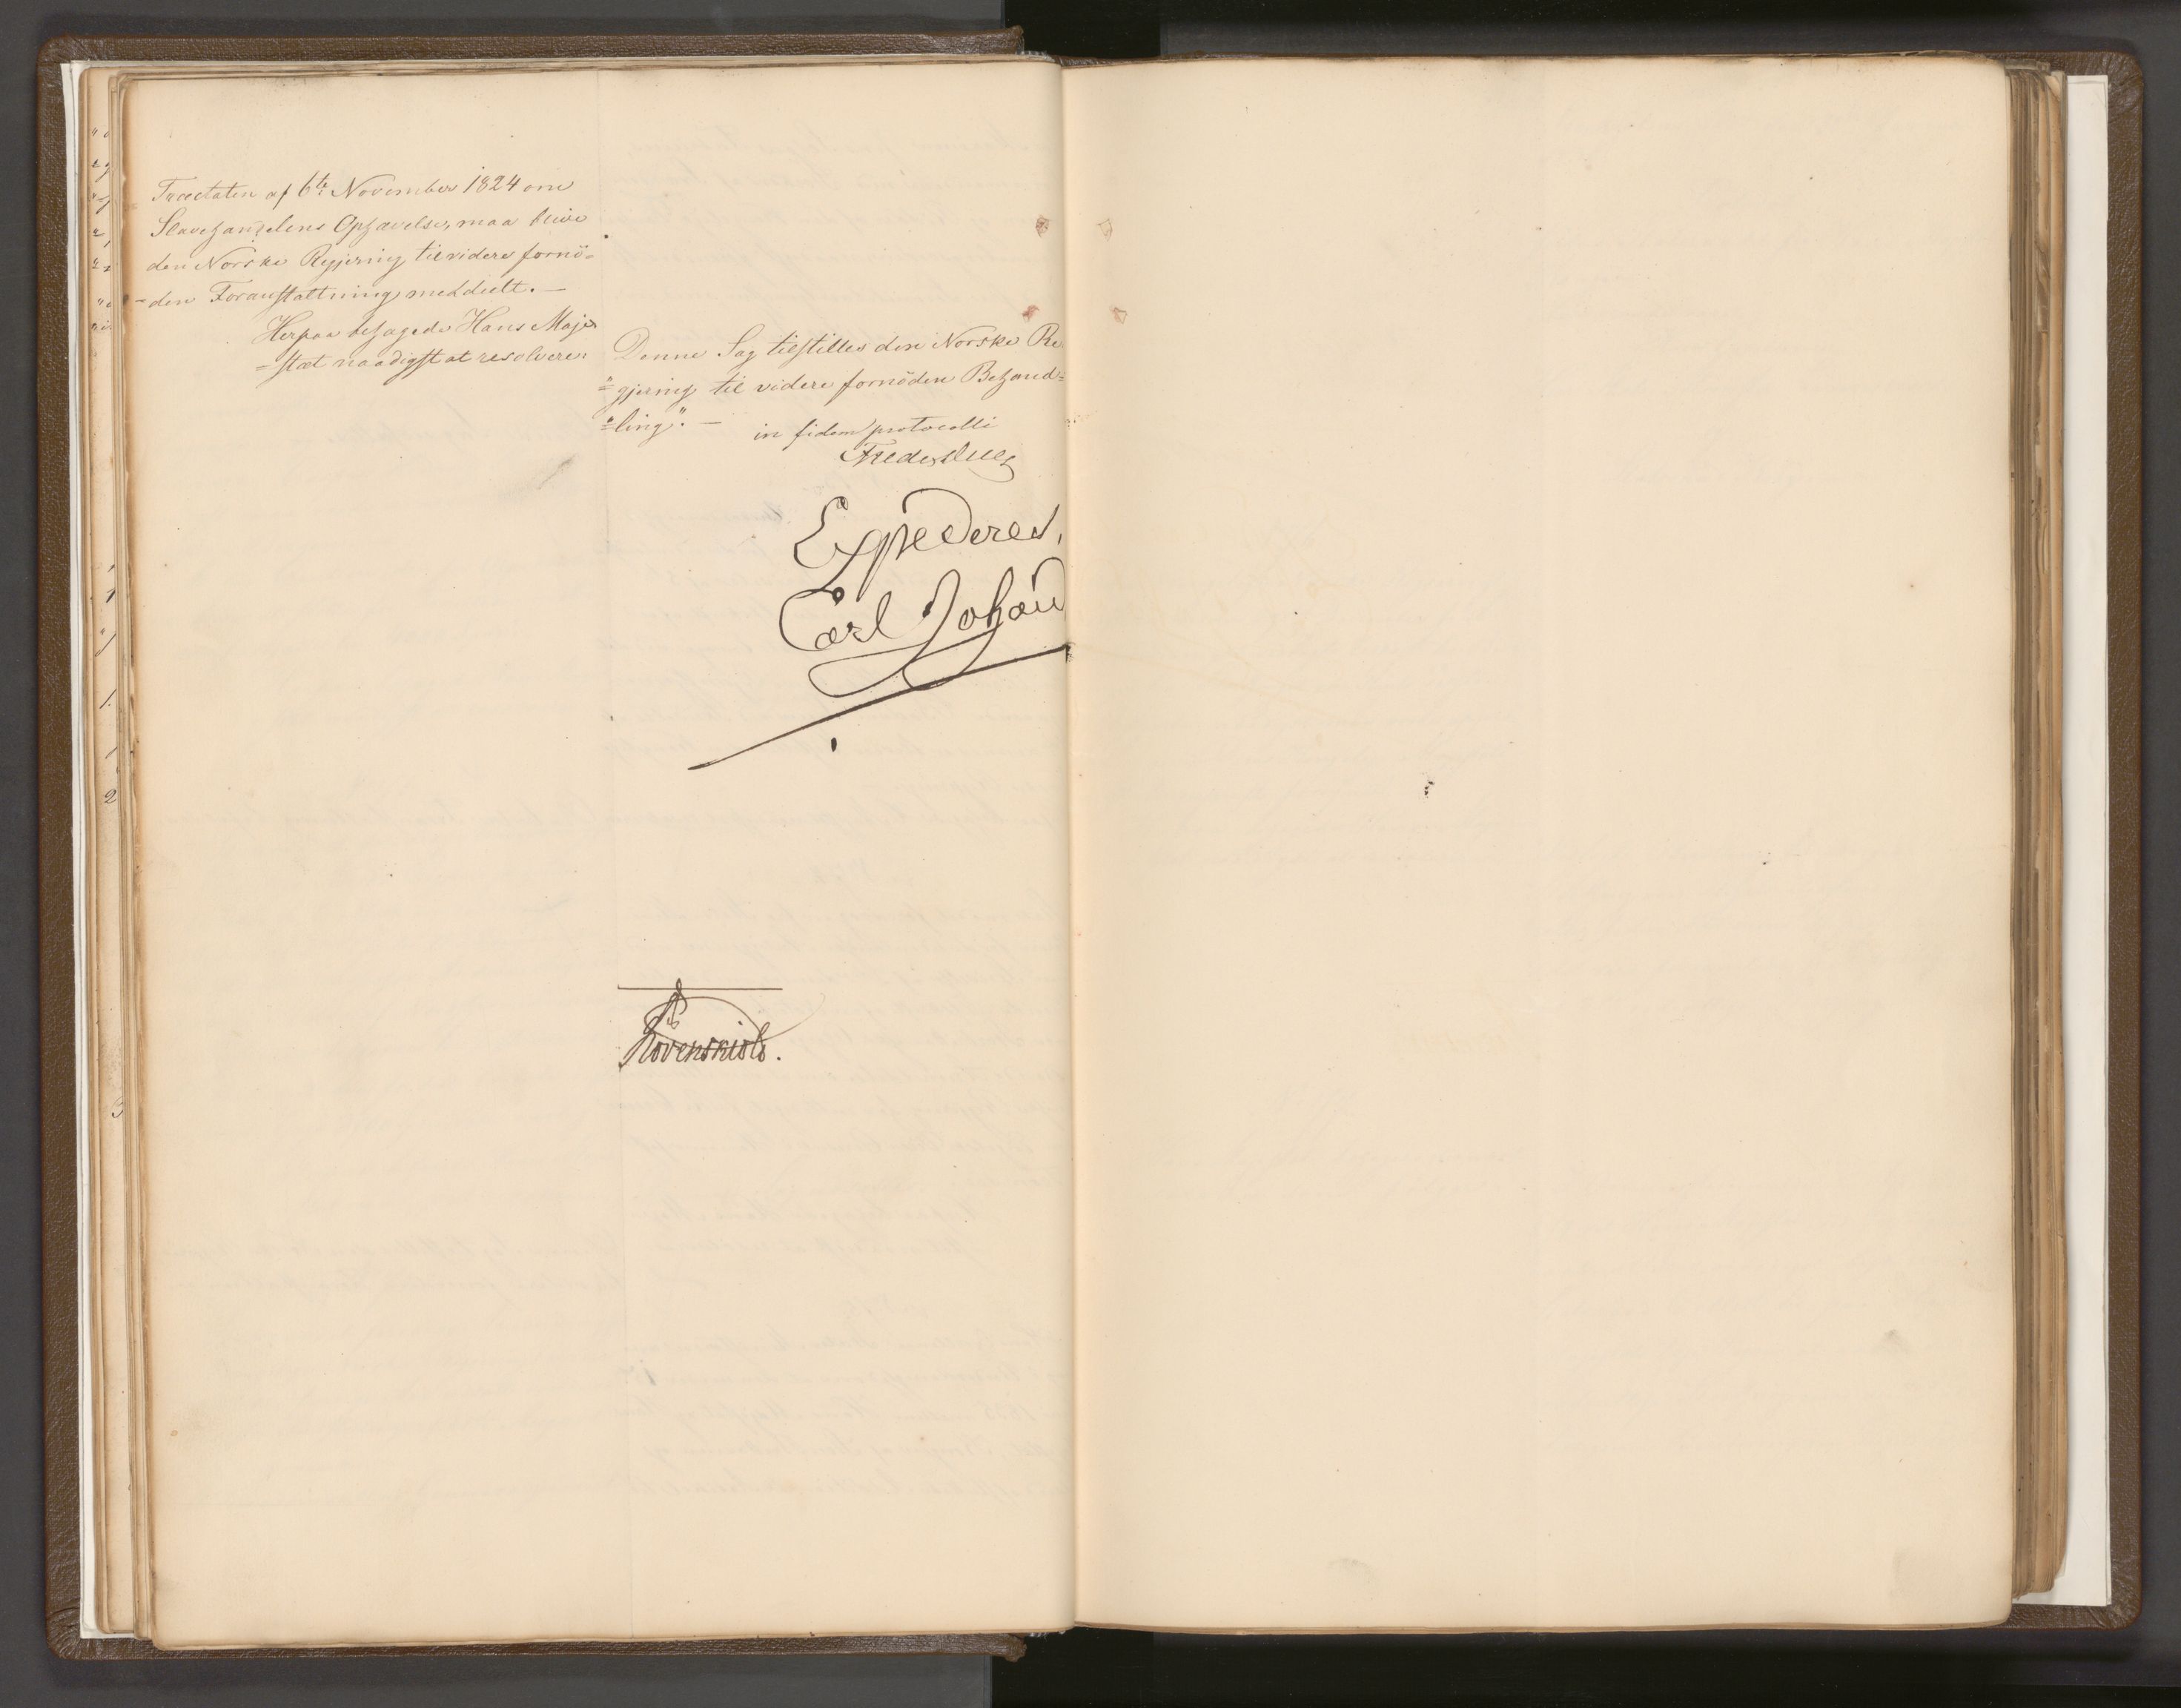 Tractaten af 6te November 1824 om
Slavehandelens Ophævelse, maa blive
den Norske Regjering til videre fornö=
=den Foranstaltning meddeelt. —
Herpaa behagede Hans Maje
=stæt naadigst at resolvere:
Denne Sag tilstilles den Norske Re
"=gjering til videre fornöden Behand=
"=ling". —
in fidem protocolli
Fred. Due
Expederes.
Carl Johan
Lövenskiold.